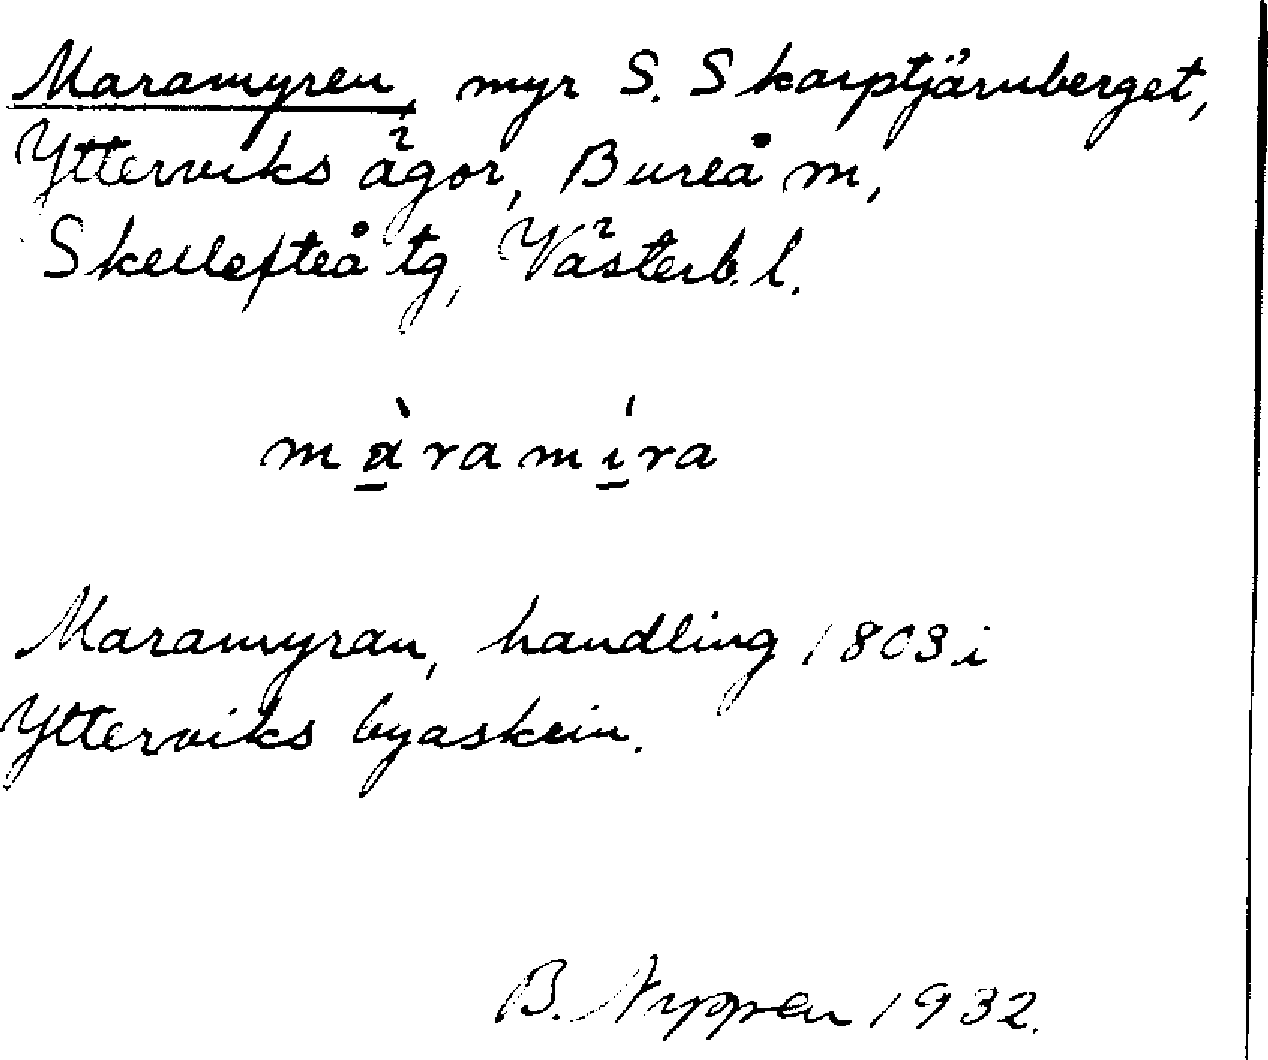 Maramyren, myr S. Skarptjärnberget,
Ytterviks ägor, Bureå m,
Skellefteå tg, Västerb. l.
màramíra
Maramyran, handling 1803 i
Ytterviks byaskrin.
B. Nyppen 1932.